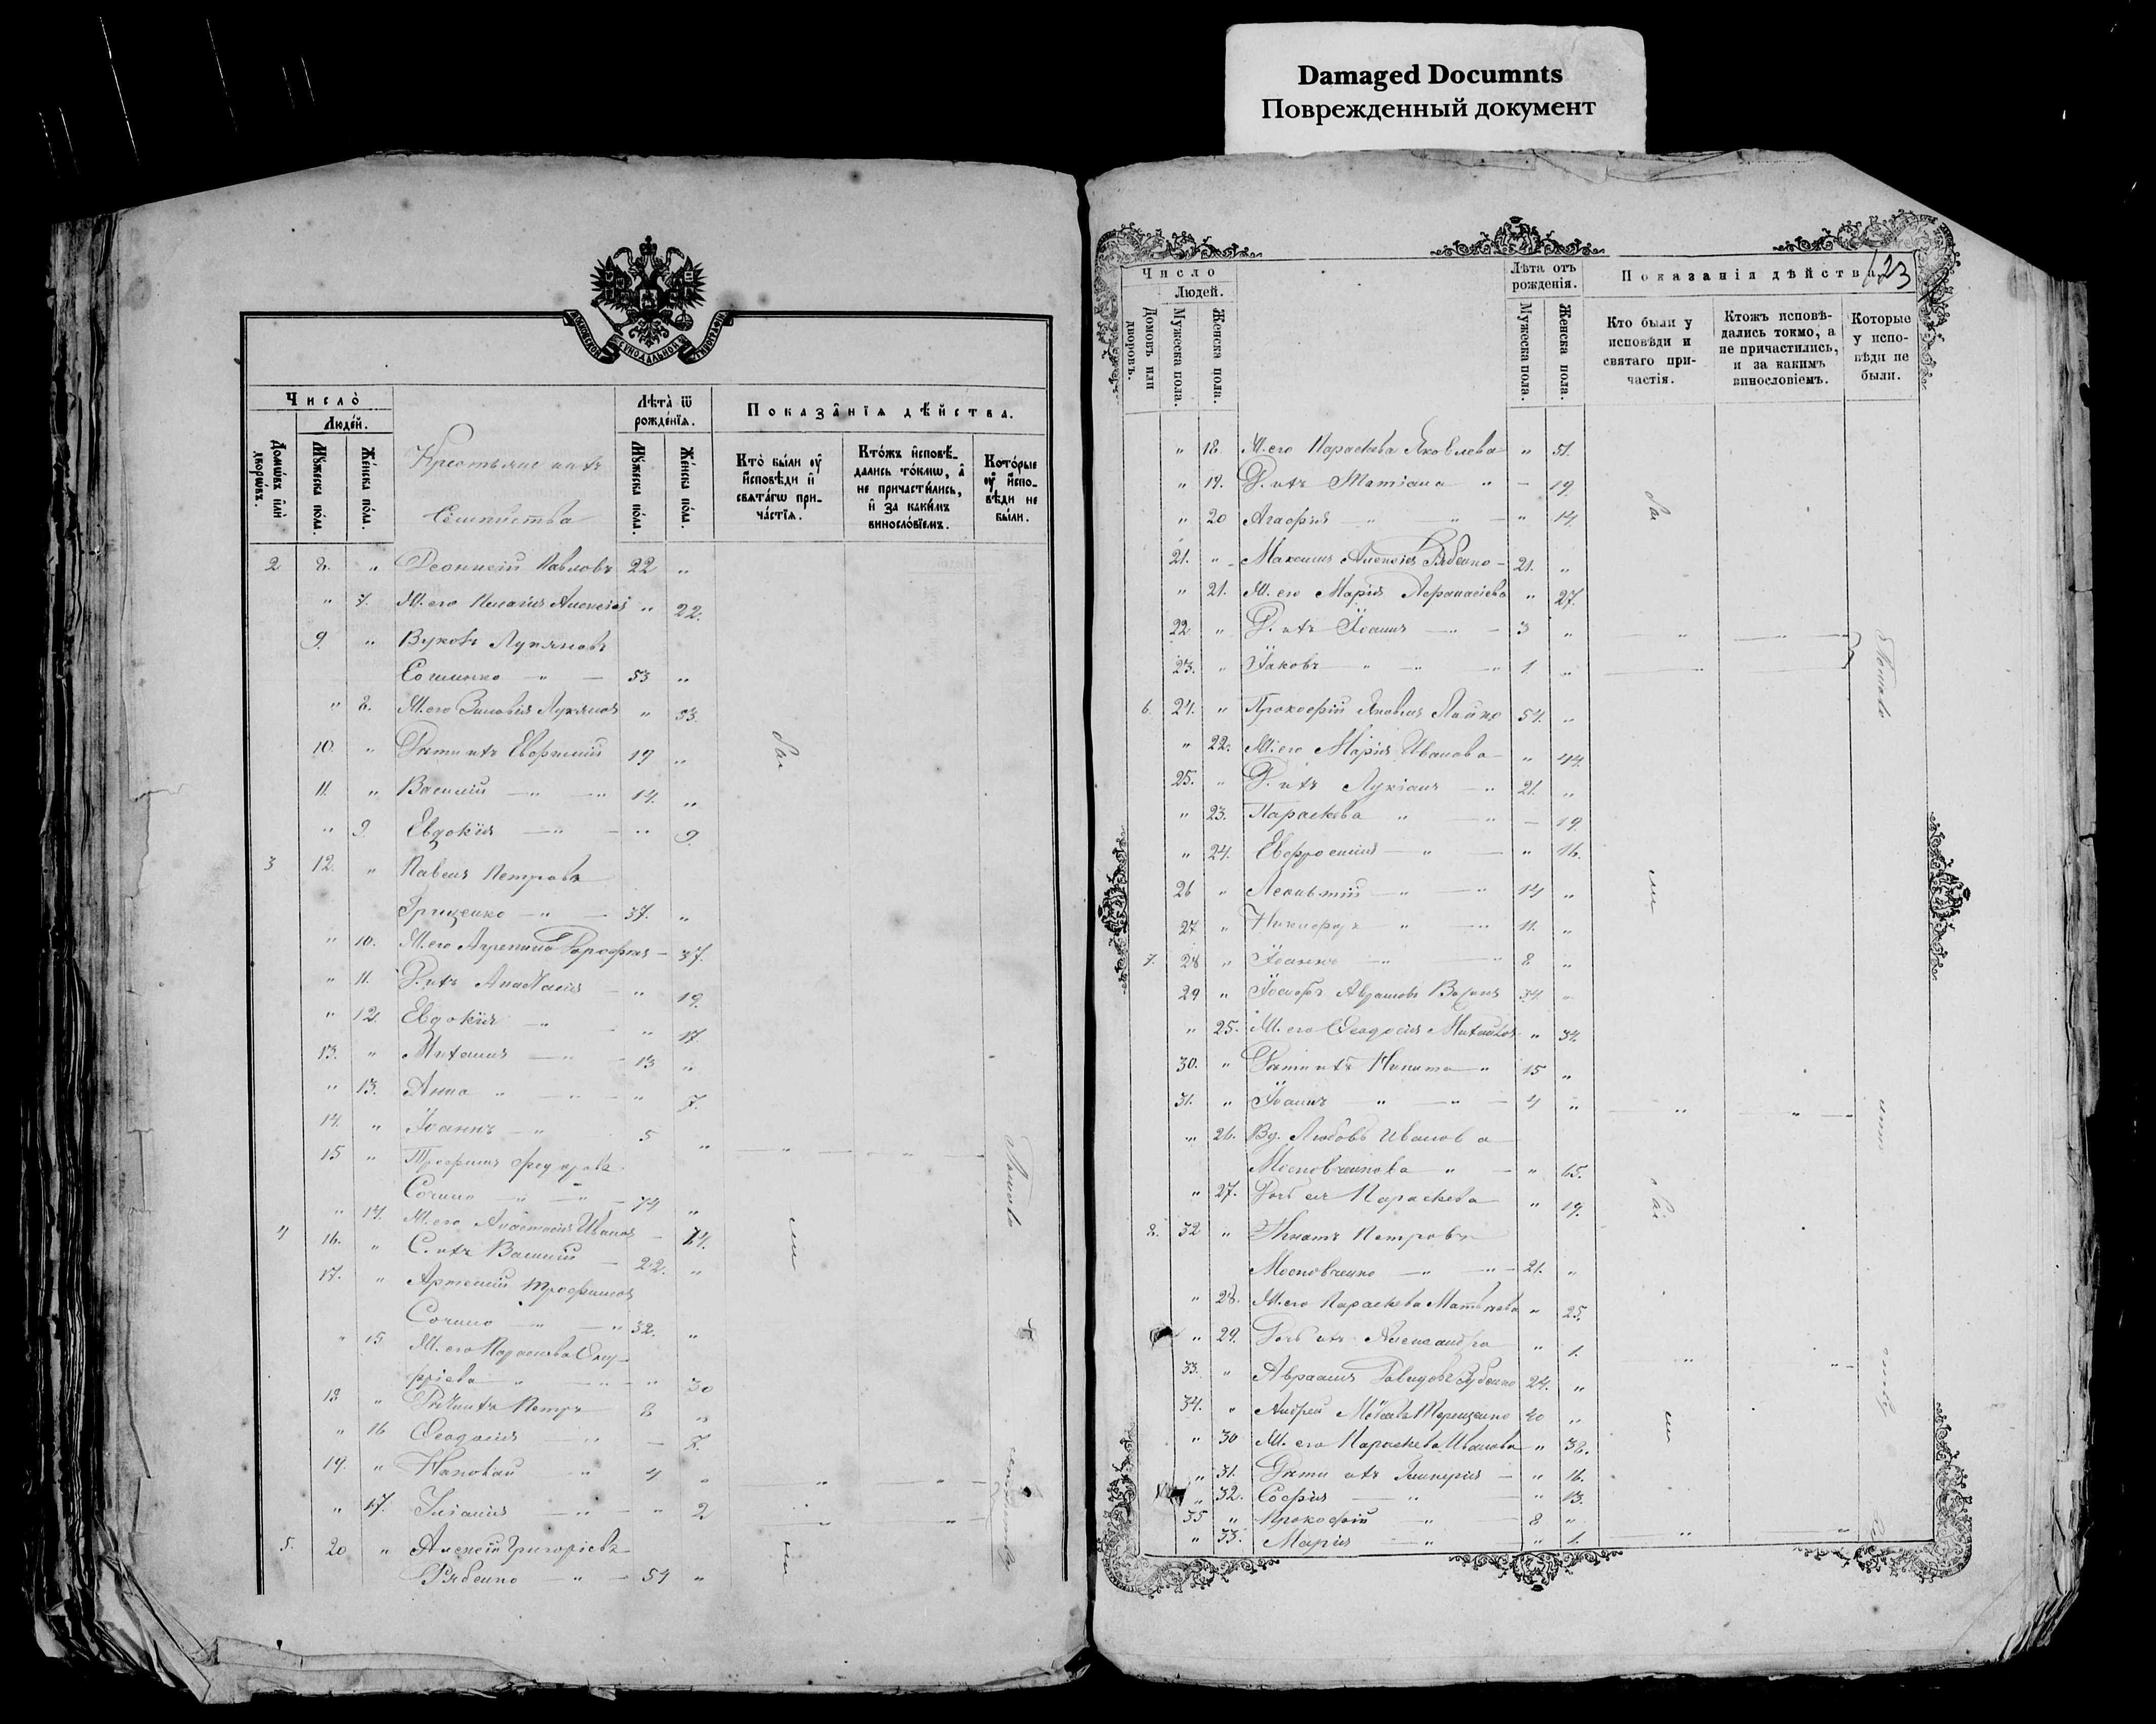 Damaged Documnts
Поврежденный документ
МОСКОВСКОЙ СУНОДАЛЬНОЙ ТИПОГРАФІИ
Число̀
Люде́й.
Домѡ́въ и҆лѝ дворѡ́въ.
Мꙋ́жеска по́ла.
Же́нска по́ла.
Крестьяне ихъ
Семейства
Лѣ́та ѿ рожде́нїѧ.
Мꙋ́жеска по́ла.
Же́нска по́ла.
Показа̑нїѧ дѣ́йства.
Кто̀ бы́ли ᲂу҆ и҆сповѣди и҆ свѧта́гѡ прича́стїѧ.
Кто́жъ и҆сповѣ́дались то́кмѡ, а҆ не причасти́лись, и҆ за каки́мъ виносло́вїемъ.
Кото́рые ᲂу҆ и҆сповѣди не бы́ли.
2 8. " Деонисій Павловъ 22 "
" 7. Ж. его Пелагія Алексіев " 22.
9. " Вуколъ Лукяновъ
" — 53 "
" 8. Ж. его Зиновія Лукянов " 53.
10. " Дѣти ихъ Евфимій 19 "
11. " Василій — " — " 14. "
" 9. Евдокія — " — " 9.
3 12. " Павелъ Петровъ
Гриценко — " — 37. "
" 10. Ж. его Агрепина — 37.
" 11. Д. ихъ Анастасія — " 19.
" 12. Евдокія — " — " 17.
13. " Михаилъ — " — 13 "
" 13. Анна " — " — " 7.
14. " Іоаннъ — " 5 "
15 " Трофимъ Федоровъ
— " — " — 74 "
" 14. Ж. его Анастасія Иванов — 74.
4 16. " С. ихъ Василій — 22. "
17. " Артемій Трофимов
— " — " 32. "
" 15 Ж. его Параскева
" — " — " 30
18 " Дѣти ихъ Петръ 8 "
" 16 Феодосія — " — 7.
19. " " 4 "
" 17. Іуліанія — " — " 2
5. 20 " Алексій Григоріевъ
Рябенко — " — 54 "
123
Число
Людей.
Домовъ или дворовъ.
Мужеска пола.
Женска пола.
Лѣта отъ рожденія.
Мужеска пола.
Женска пола.
Показанія дѣйства.
Кто были у исповѣди и святаго причастія.
Ктожъ исповѣдались токмо, а не причастились, и за какимъ винословіемъ.
Которые у исповѣди не были.
" 18. Ж. его Параскева Яковлева " 51.
" 19. Д. ихъ Татіана " — 19.
" 20 Агафія — " — " 14.
21. " Максимъ Алексіев Рябенко — 21. "
" 21. Ж. его Марія Афанасіева " 27.
22 " Д. ихъ Іоаннъ — " — 3 "
23. " Іаковъ — " — " 1. "
6. 24. " Прокофій Яковлев 54. "
" 22. Ж. его Марія Иванова — " 44.
25. " Д. ихъ Лукіанъ — " 21. "
" 23. Параскева " — " — 19.
" 24. Евфросинія — " — " 16.
26 " Леонтій — " — " 14 "
27 " Никифоръ " — " 11. "
7. 28 " Іоаннъ — " — " 8 "
29 " Іосифъ Авраамовъ 34 "
" 25. Ж. его Феодосія Михайлов " 34.
30. " Дѣти ихъ Никита " 15 "
31. " Іоаннъ — " — " — 4 "
" 26. Вд. Любовь Иванова
Московченкова " — " 65.
" 27. Дочь ея Параскева " 19.
8. 32 " Игнатъ Петровъ
Московченко — " — " — 21. "
" 28. Ж. его Параскева Матвѣева " 25.
" 29. Дочь ихъ Александра " 1.
33. " Авраамъ Давидовъ Зубенко 24. "
34. " Андрей Терещенко 40 "
" 30 Ж. его Параскева Иванова " 38.
" 31. Дѣти ихъ Гликерія — " 16.
" 32. Софія — " — " 13.
35 " Прокофій — " 8 "
" 33. Марія — " " 1.